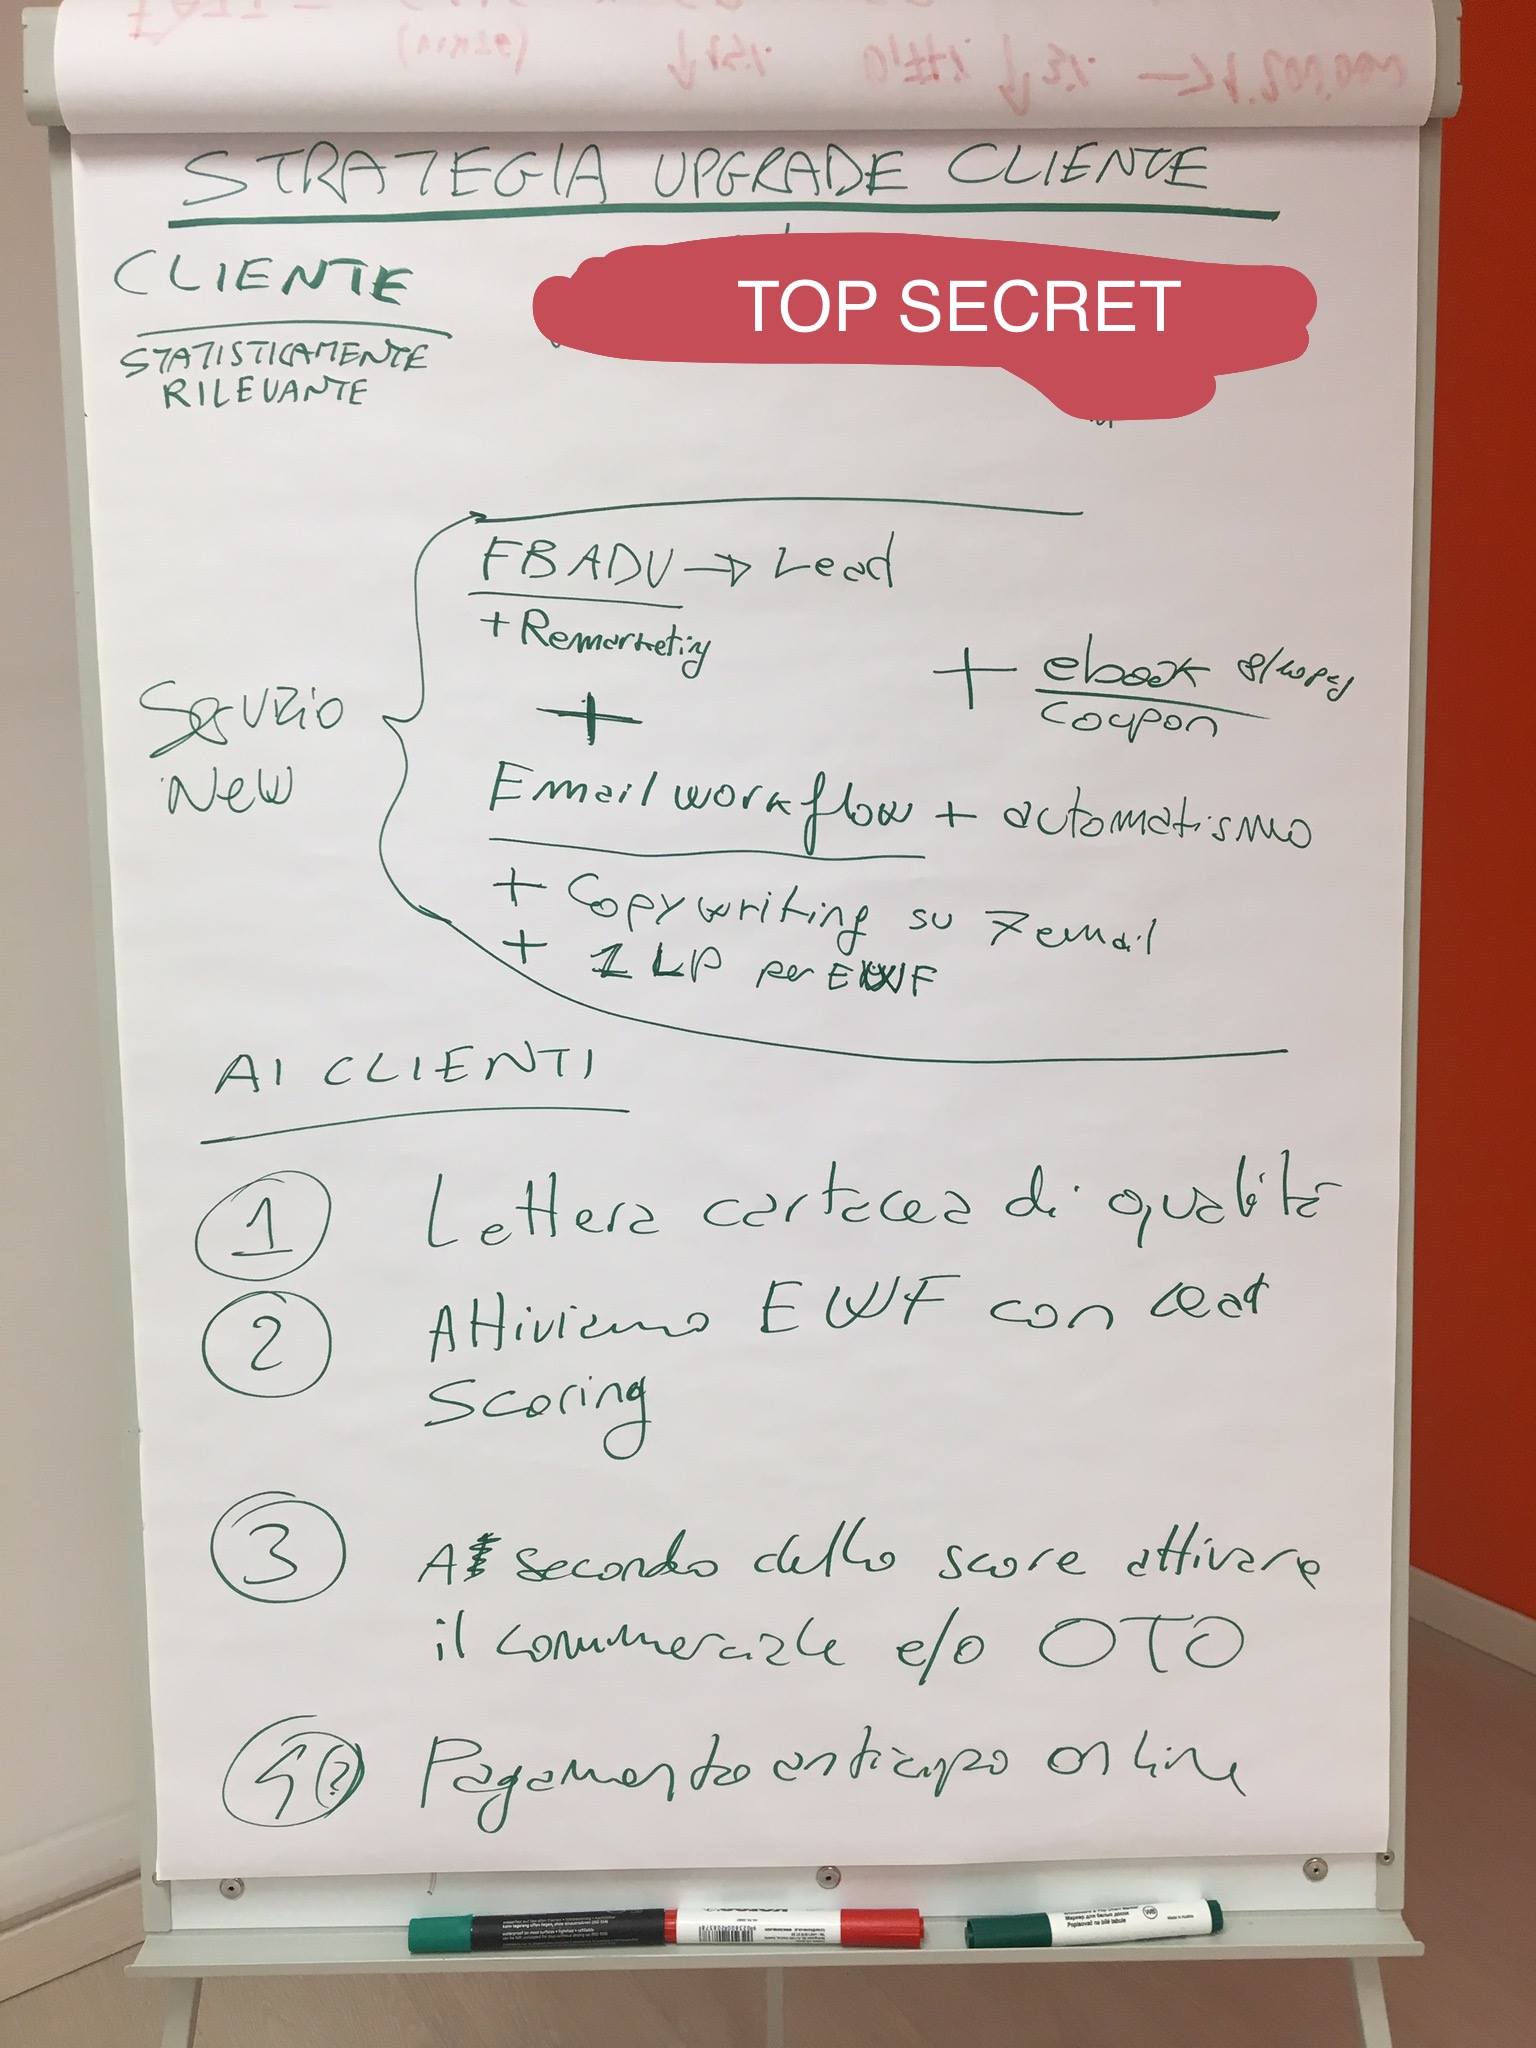 STRATEGIA UPGRADE CLIENTE
CLIENTE
STATISTICAMENTE
RILEVANTE
TOP SECRET
FB ADV → Lead
+ Remarketing
+
+ ebook
coupon
Servizio
New
Email workflow + automatismo
+ Copywriting su 7 email
+ 1 LP per EWF
AI CLIENTI
1 Lettera cartacea di qualità
2 Attiviamo EWF con lead
scoring
3 A secondo dello score attivare
il commerciale e/o OTO
4(?) Pagamento anticipo online